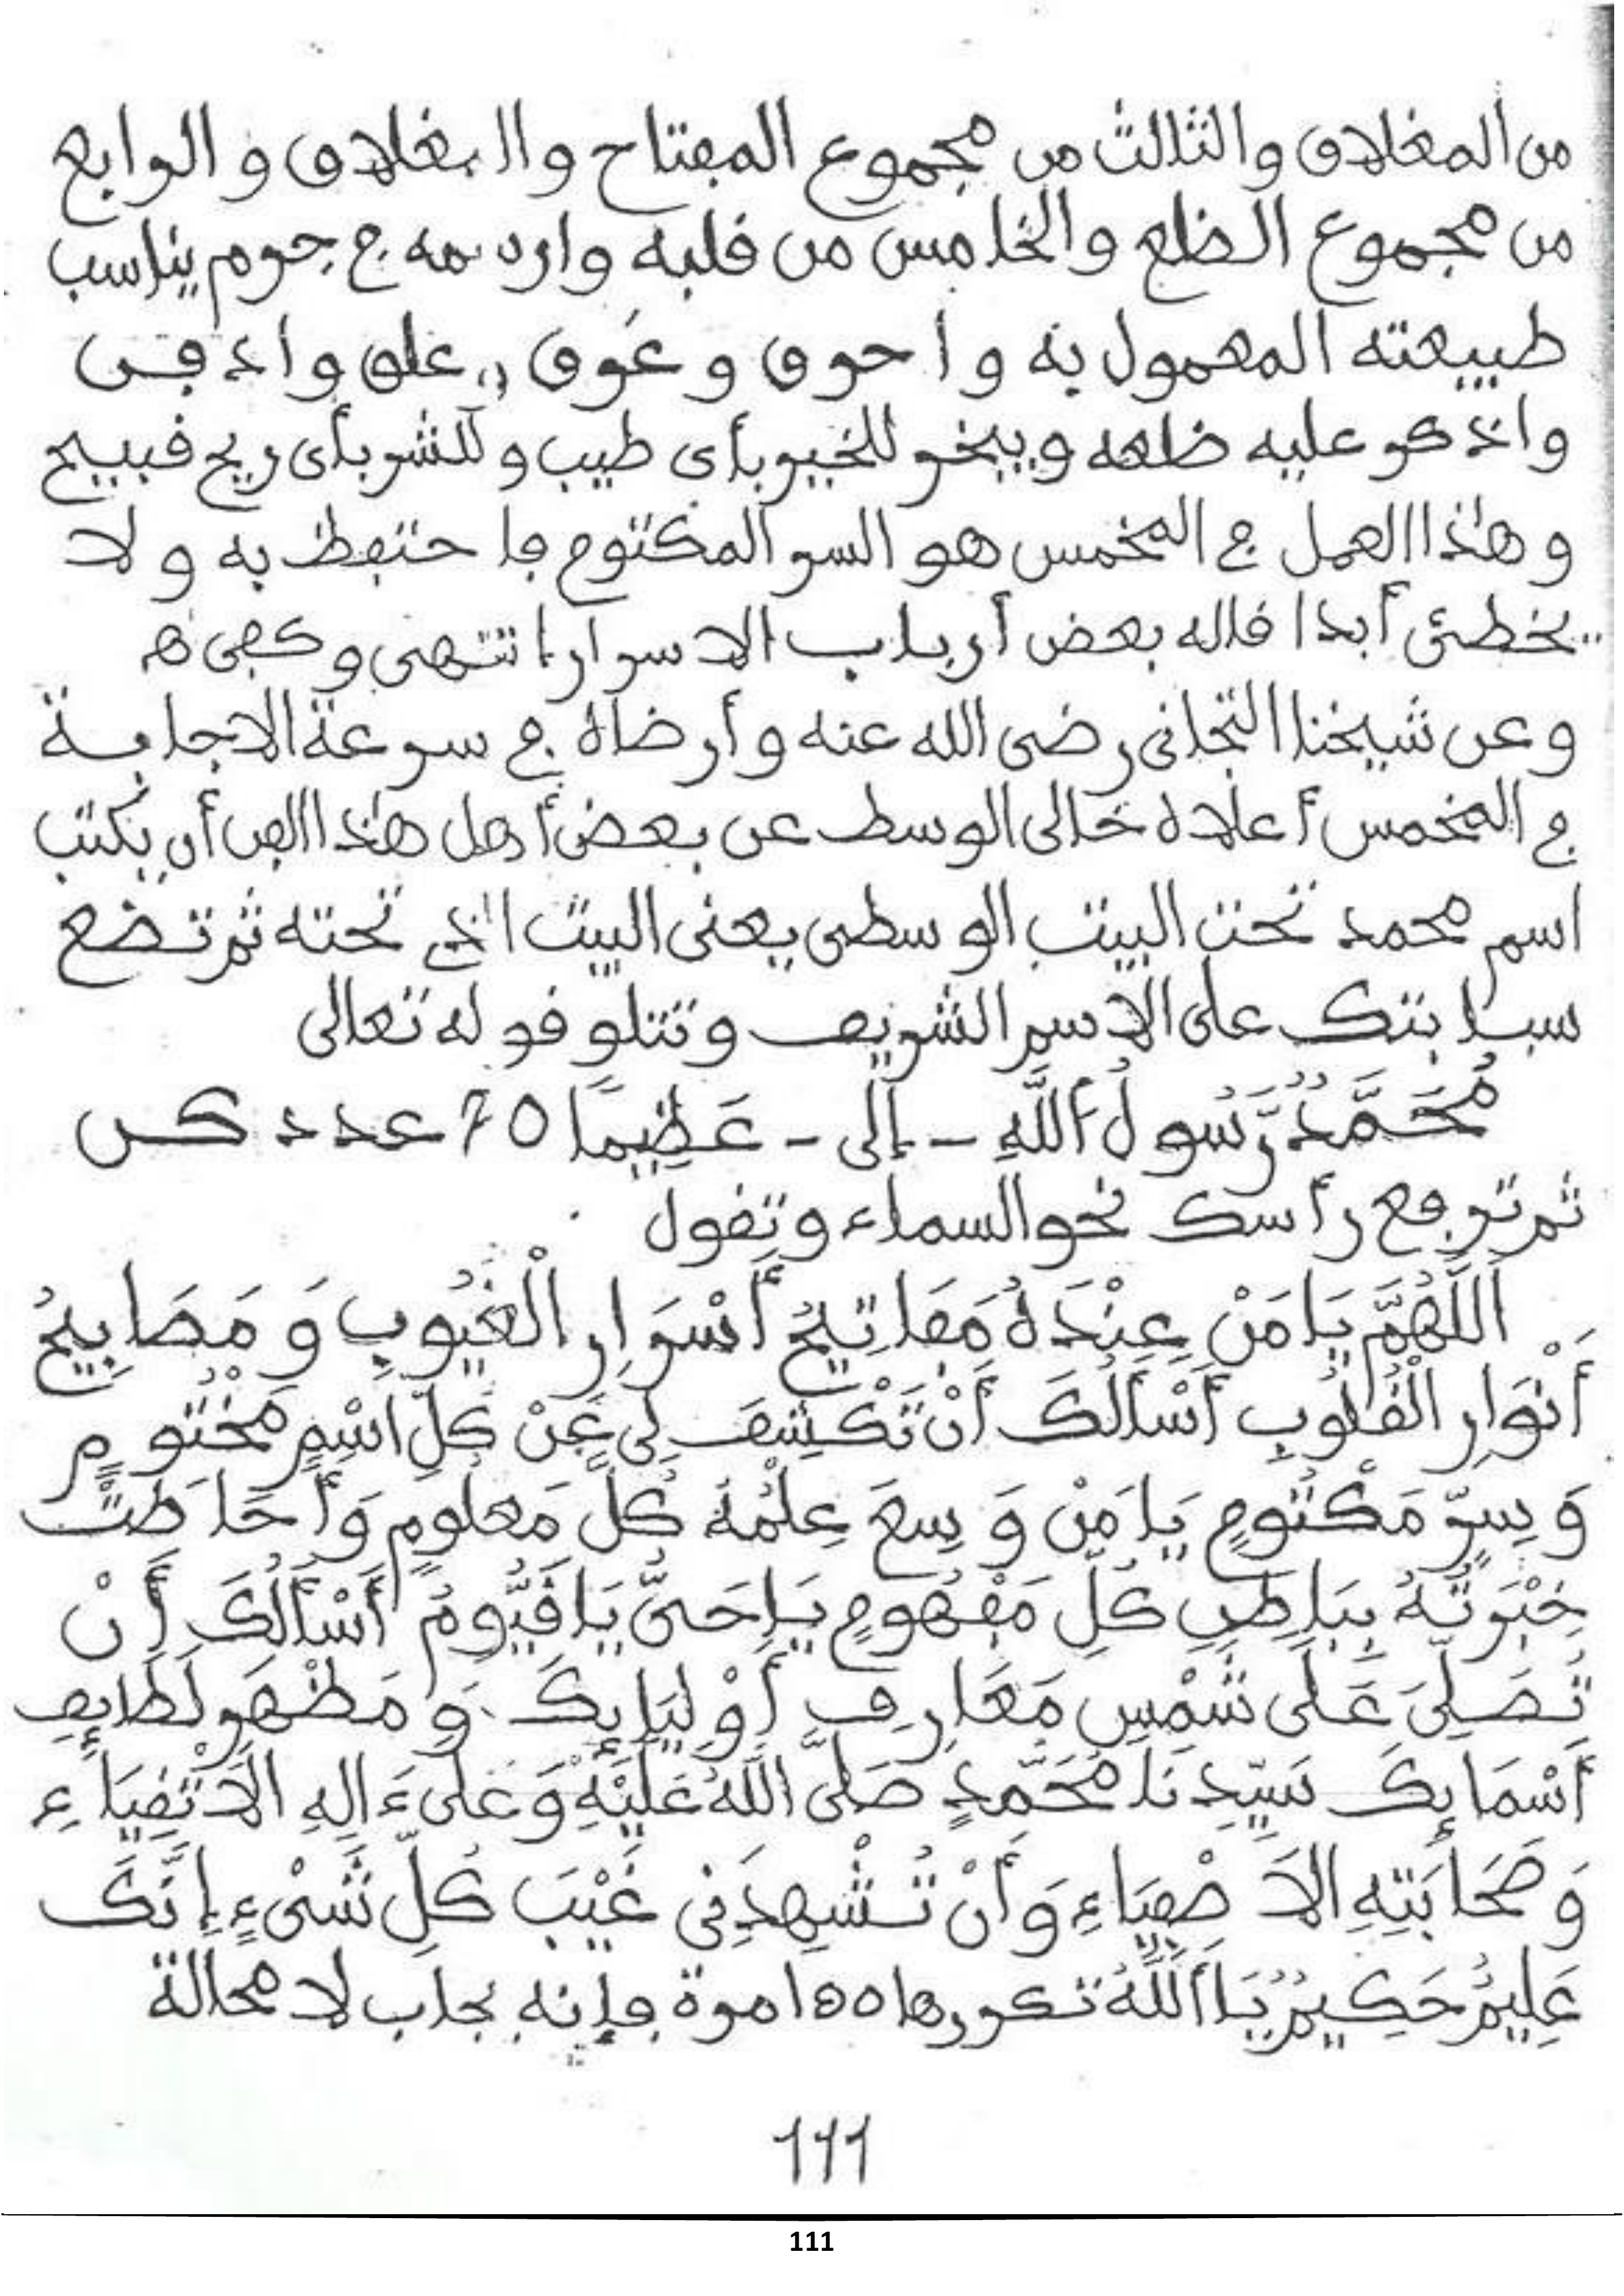 من المغلاق والثالث من مجموع المفتاح والمغلاق والرابع
من مجموع الضلع والخامس من قلبه وارسمه في جرم يناسب
طبيعته المعمول به واحرق وعوق وعلق وادفن
واذكر عليه ضلعه ويبخر للخير بأي طيب وللشر بأي ريح قبيح
وهذا العمل في المخمس هو السر المكتوم فاحتفظ به ولا
يخطئ أبدا قاله بعض أرباب الاسرار انتهى وكفى ه
وعن شيخنا التجاني رضى الله عنه وأرضاه في سرعة الاجابة
في المخمس أعلاه خالى الوسط عن بعض أهل هذا الفن أن يكتب
اسم محمد تحت البيت الوسطى يعنى البيت الذي تحته ثم تضع
سبابتك على الاسم الشريف وتتلو قوله تعالى
مُحَمَّدٌ رَّسُولُ اللَّهِ - إلى - عَظِيمًا 70 عدد كن
ثم ترفع رأسك نحو السماء وتقول
اَللَّهُمَّ يَا مَنْ عِنْدَهُ مَفَاتِيحُ أَسْرَارِ الْغُيُوبِ وَمَصَابِيحُ
أَنْوَارِ الْقُلُوبِ أَسْأَلُكَ أَنْ تَكْشِفَ لِي عَنْ كُلِّ اسْمٍ مَخْتُومٍ
وَسِرٍّ مَكْتُومٍ يَا مَنْ وَسِعَ عِلْمُهُ كُلَّ مَعلُومٍ وَأَحَاطَتْ
خِبْرَتُهُ بِبَاطِنِ كُلِّ مَفْهُومٍ يَا حَيُّ يَا قَيُّومُ أَسْأَلُكَ أَنْ
تُصَلِّيَ عَلَى شَمْسِ مَعَارِفِ أَوْلِيَائِكَ وَمَظْهَرِ لَطَائِفِ
أَسْمَائِكَ سَيِّدِنَا مُحَمَّدٍ صَلَّى اللَّهُ عَلَيْهِ وَعَلَى ءَالِهِ الْأَتْقِيَاءِ
وَصَحَابَتِهِ الْأَصْفِيَاءِ وَأَنْ تُشْهِدَنِي غَيْبَ كُلِّ شَيْءٍ إِنَّكَ
عَلِيمٌ حَكِيمٌ يَا اَللَّهُ تكررها 150 مرة فإنه يجاب لا محالة
111
111